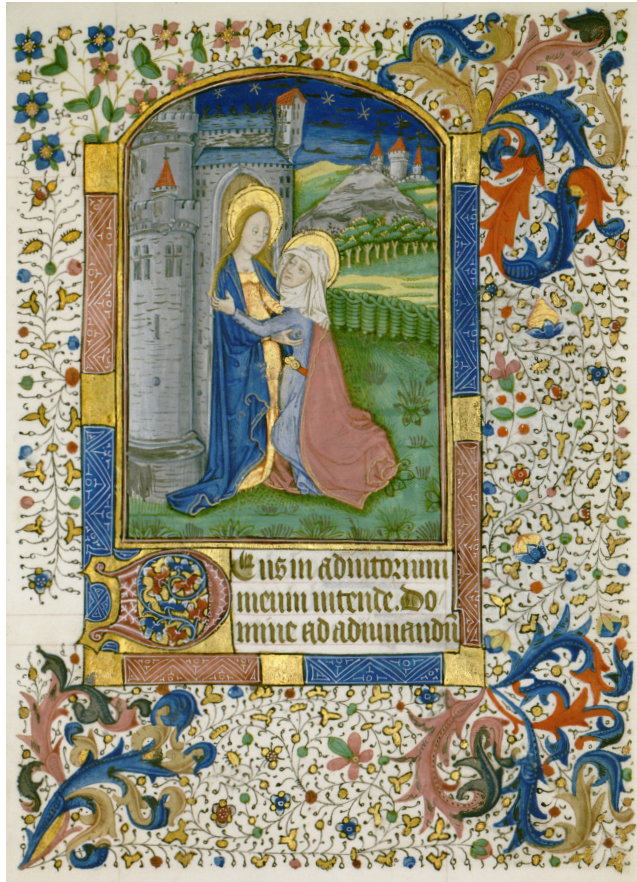 Deus in adiutorium
meum intende. Do/
mine ad adiuuandū